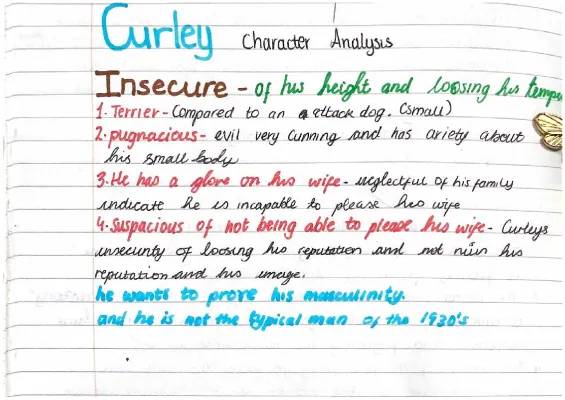 Curley Character Analysis
Insecure - of his height and loosing his temper
1. Terrier - Compared to an attack dog. (small)
2. pugnacious - evil very cunning and has axiety about
his small body
3. He has a glove on his wife - neglectful of his family
indicate he is incapable to please his wife
4. Suspacious of not being able to please his wife - Curleys
insecurity of loosing his reputation and not his
reputation and his image.
he wants to prove his masculinity.
and he is not the typical man of the 1930's